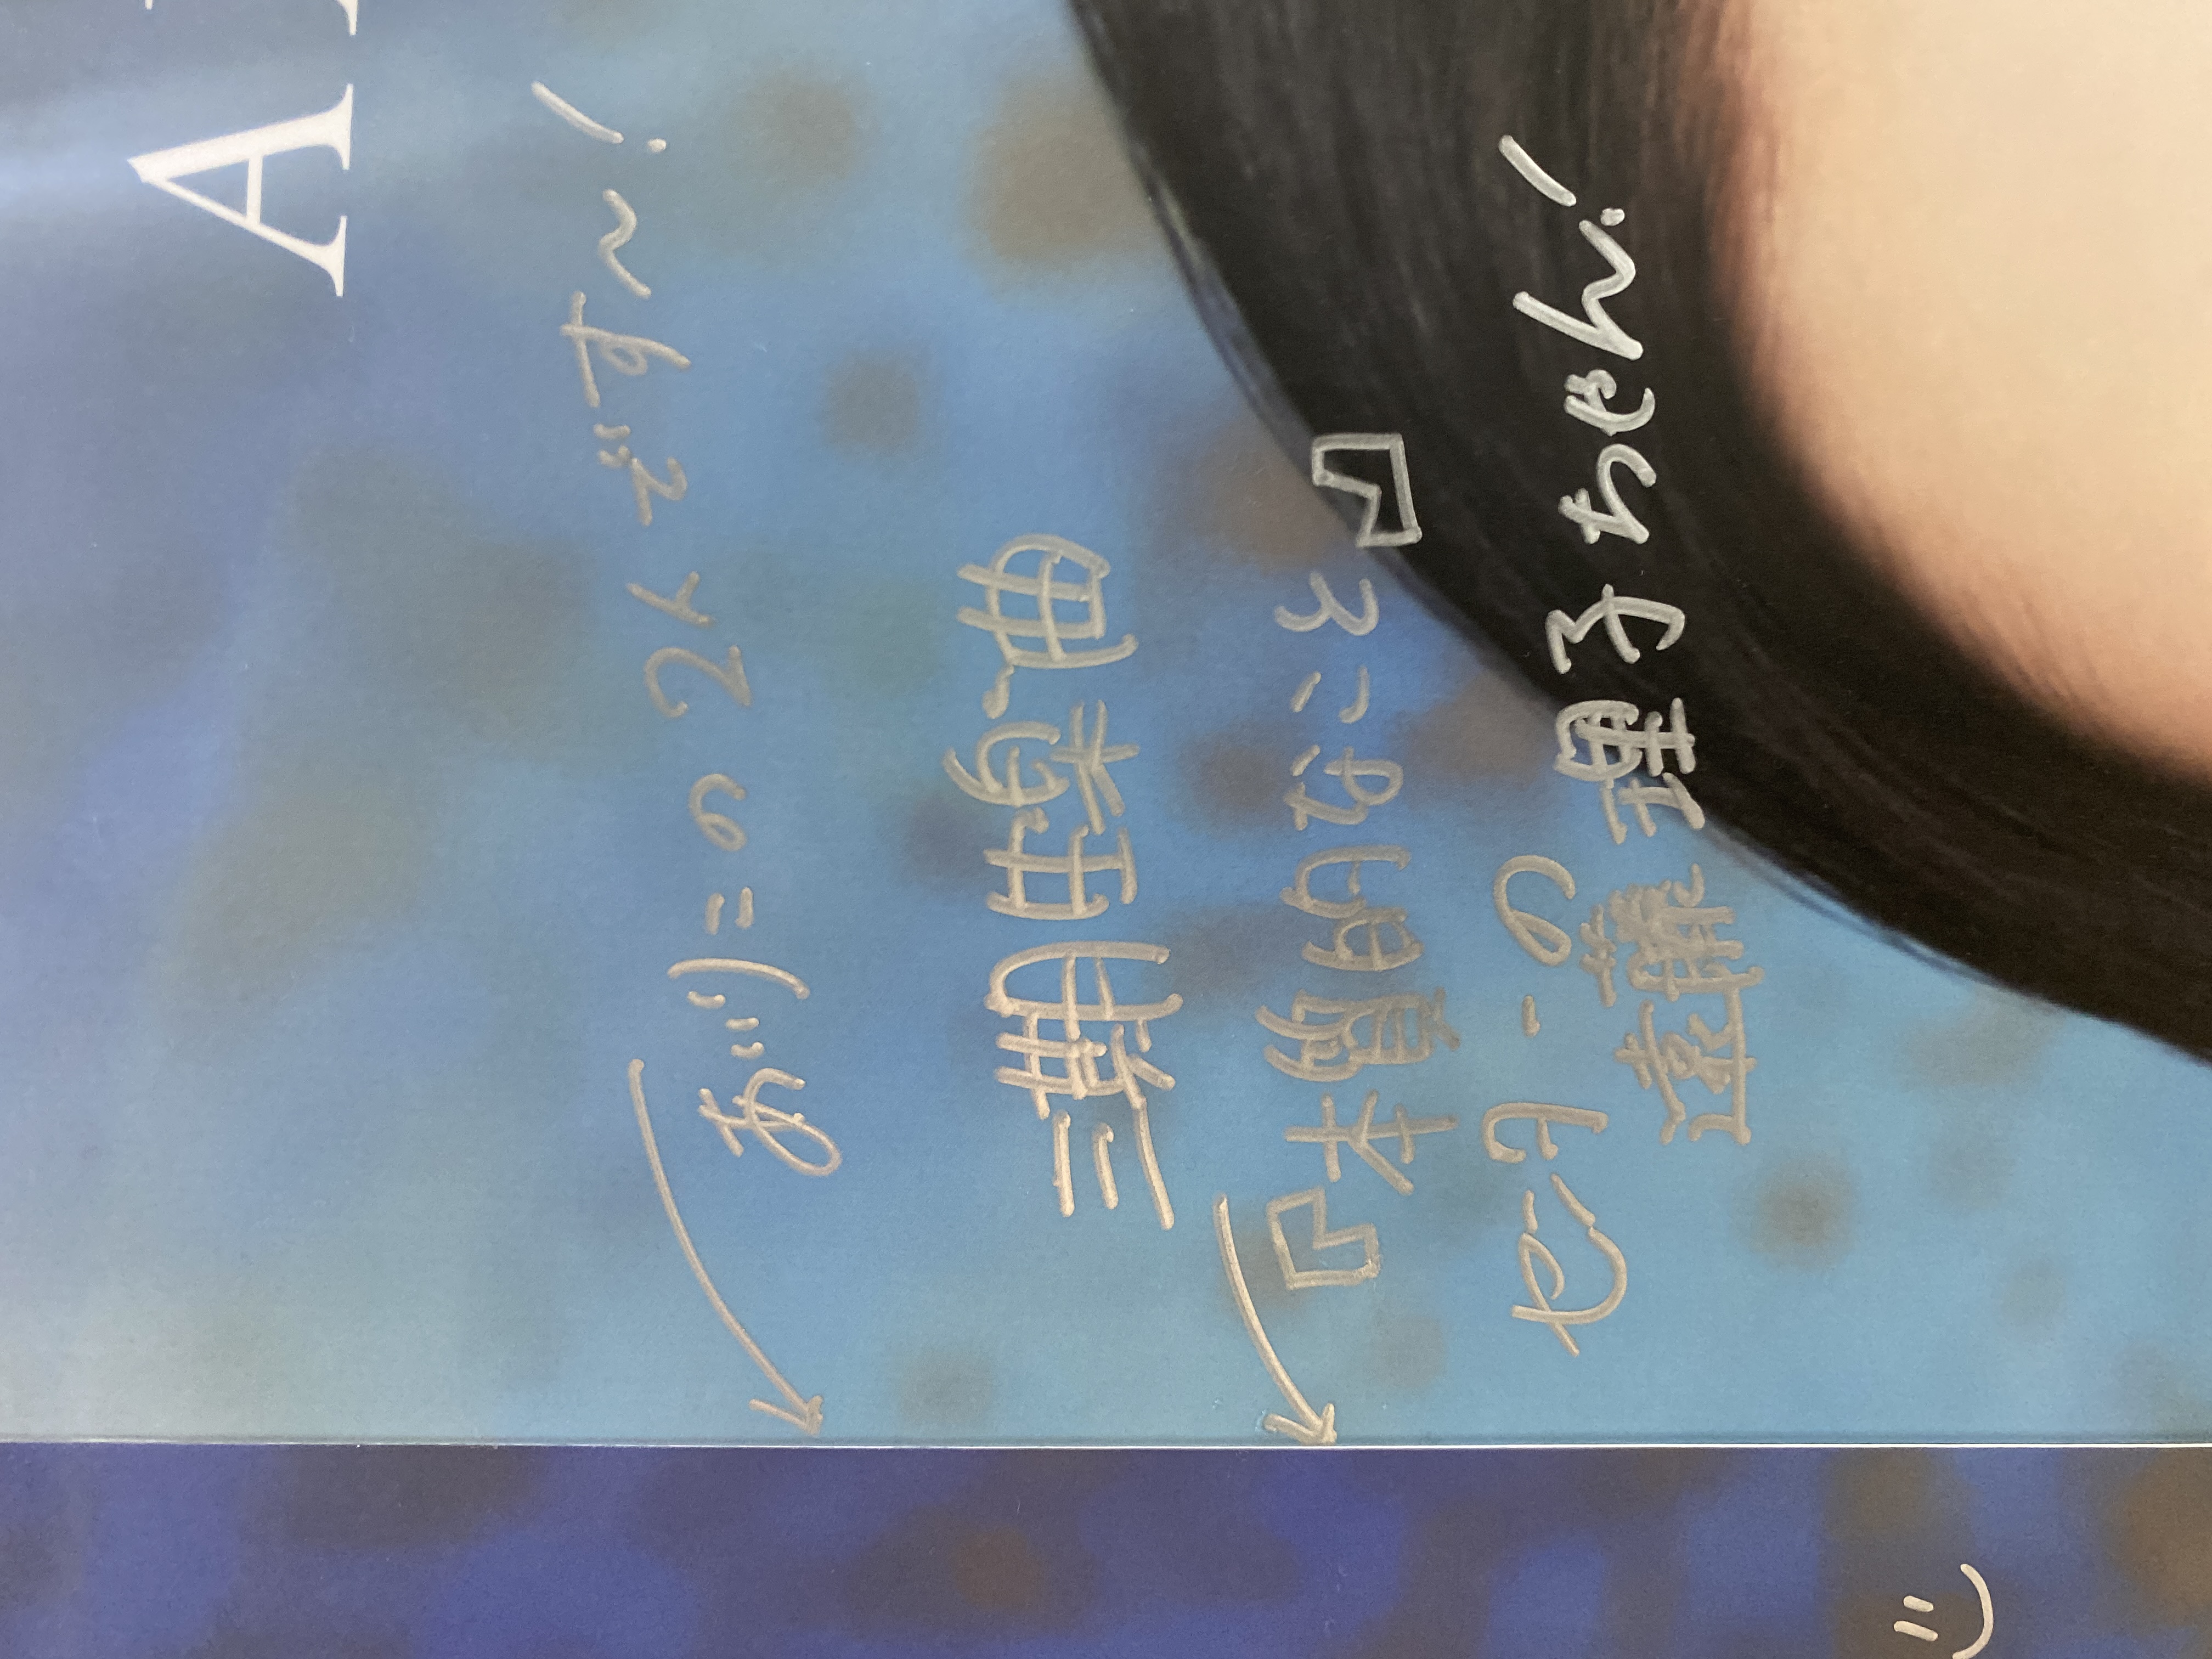 A
あいりこの2人です〜!
三期生楽曲
『本質的なこと』
センターの
遠藤理子ちゃん!